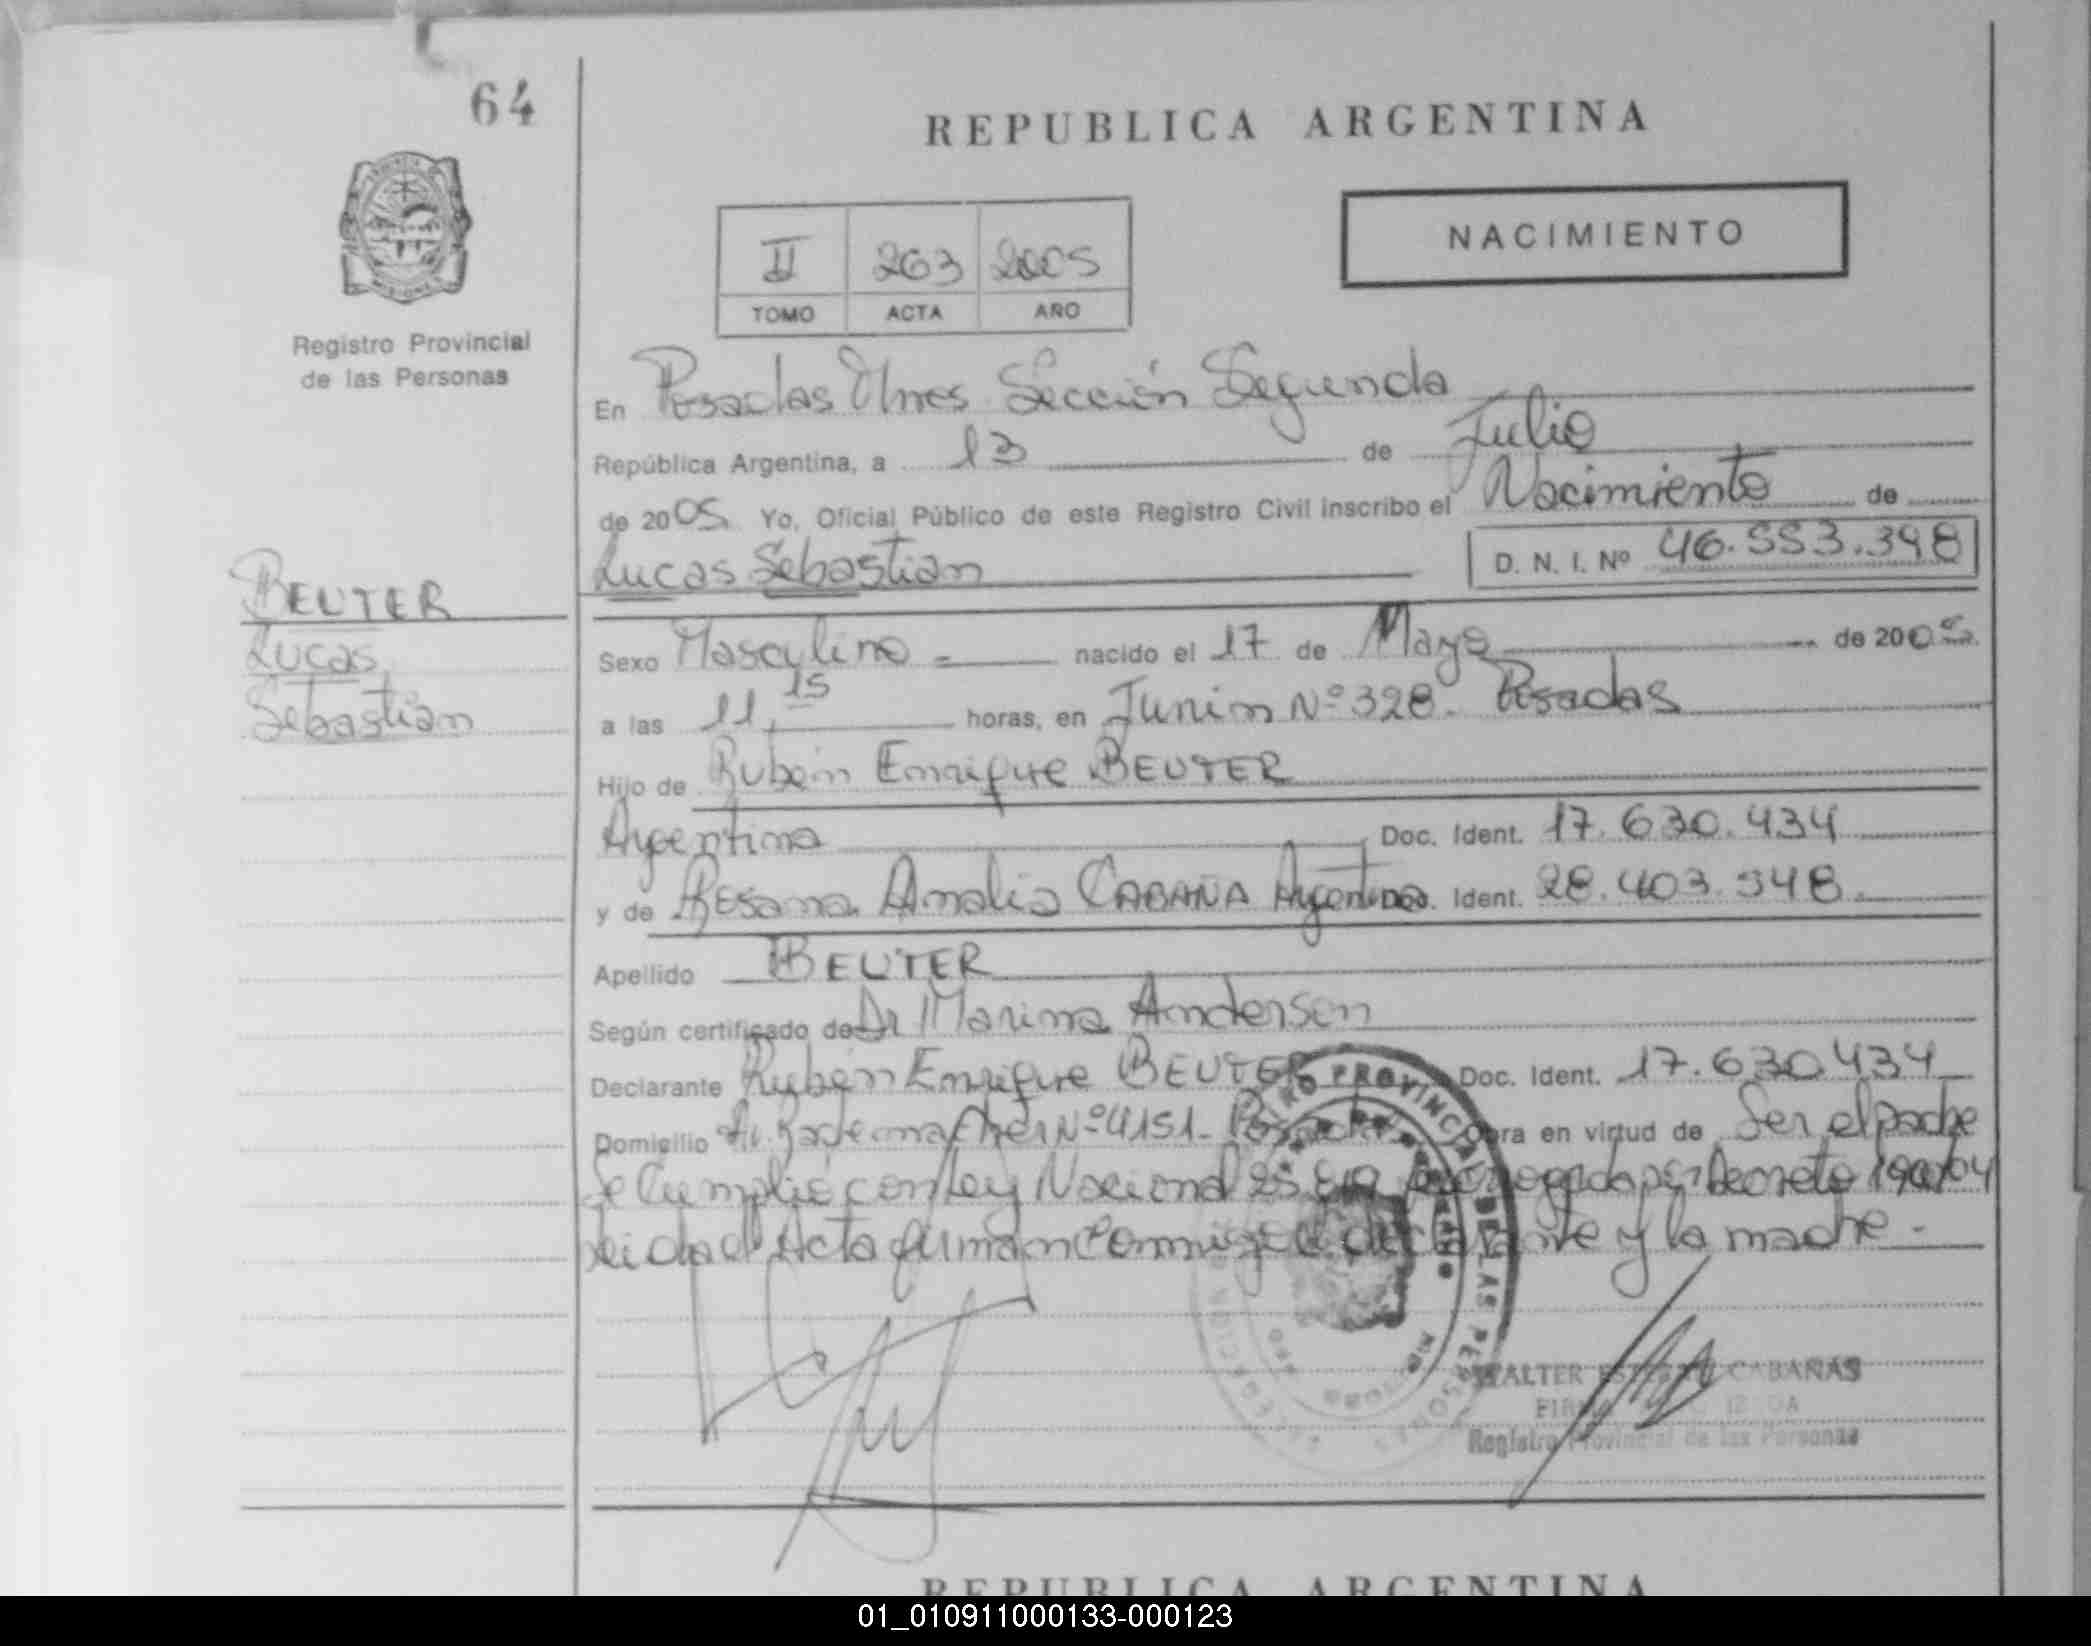 64
REPUBLICA ARGENTINA
PROVINCIA
MISIONES
Registro Provincial
de las Personas
II 263 2005
TOMO ACTA AÑO
NACIMIENTO
En Posadas Mnes Sección Segunda
República Argentina, a 13 de Julio
de 2005 Yo, Oficial Público de este Registro Civil inscribo el Nacimiento de
Lucas Sebastian D. N. I. Nº 46.553.398
BEUTER
Lucas
Sebastian
Sexo Masculino nacido el 17 de Mayo de 2005
a las 11,15 horas, en Junin Nº 328. Posadas
Hijo de Rubén Enrique BEUTER
Argentina Doc. Ident. 17.630.434
y de Rosana Analia CABAÑA Argentina Doc. Ident. 28.403.948.
Apellido BEUTER
Según certificado de Dr Marina Anderson
Declarante Rubén Enrique BEUTER Doc. Ident. 17.630434
Domicilio Av. Nº 4151. Posadas Obra en virtud de Ser el padre
Se Cumplió con Ley Nacional 25. por Decreto
Leida el Acta firman Conmigo el declarante y la madre.
REGISTRO PROVINCIAL DE LAS PERSONAS
WALTER CABAÑAS
Registro Provincial de las Personas
REPUBLICA ARGENTINA
01_010911000133-000123